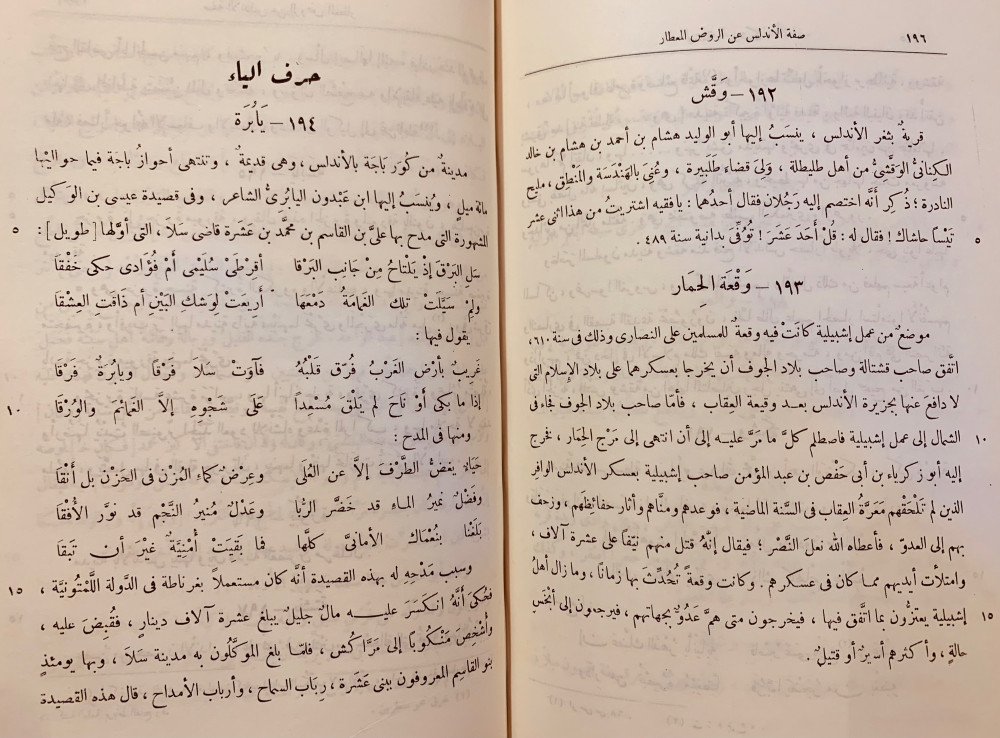 ١٩٦
صفة الأندلس عن الروض المعطار
١٩٢ - وَقَّش
قرية بثغر الأندلس ، ينسَبُ إليها أبو الوليد هشام بن أحمد بن هشام بن خالد
الكِنانىُّ الوَقَّشِىُّ من أهل طليطلة ، وَلِىَ قضاء طَلَبِيرة ، وعُنِىَ بالهَنْدَسَة والمنطق ، مليح
النادرة ؛ ذُكِر أنَّه اختصم إليه رجُلان فقال أحدُهما : يا فقيه اشتريتُ من هذا اثنى عشر
تَيْسًا حاشاك ! فقال له : قُلْ أَحَدَ عَشَرَ ! تُوُفِّىَ بدانية سنة ٤٨٩ .
٥
١٩٣ - وَقْعَة الحِمَار
موضعٌ من عمل إشبيلية كانَتْ فيه وقعةٌ للمسلمين على النصارى وذلك فى سنة ٦١٠،
اتَّفق صاحب قشتالة وصاحب بلاد الجوف أن يخرجا بعسكرهما على بلاد الإسلام التى
لا دافعَ عنها بجزيرة الأندلس بعد وقيعة العِقاب ، فأمّا صاحب بلاد الجوف فجاء فى
الشمال إلى عمل إشبيلية فاصطلم كلَّ ما مرَّ عليه إلى أن انتهى إلى مَرْج الحِمَار ، فخرج
١٠
إليه أبو زكرياء بن أبى حَفْص بن عبد المؤمن صاحب إشبيلية بعسكر الأندلس الوافِرِ
الذين لم تَلْحَقْهم مَعَرَّةُ العِقاب فى السَّنة الماضية ، فوعدهم ومنَّاهم وأثار حفائظَهم ، وزحف
بهم إلى العدوّ ، فأعطاه الله نعلى النَّصْر ؛ فيقال إنَّهُ قتل منهم نيّفًا على عشرة آلاف،
وامتلأت أيديهم مما كان فى عسكرهم . وكانت وقعةً تُحُدِّثَ بها زمانًا ، وما زال أهلُ
إشبيلية يعتزُّون بما اتَّفق فيها ، فيخرجون متى همَّ عَدُوٌّ بجهاتهم ، فيرجعون إلى أنْحَسِ
١٥
حالةٍ ، وأكثرهم أسيرٌ أو قتيلٌ .
حرف الياء
١٩٤ - يَابُرَة
مدينةٌ من كُوَر بَاجَة بالأندلس ، وهى قديمةٌ ، وتنتهى أحوازُ باجَة فيما حواليْها
مائة ميلٍ ، ويُنسَبُ إليها ابن عَبْدون اليابُرِىُّ الشاعر ، وفى قصيدة عيسى بن الوَكيل
المشهورة التى مدح بها علىَّ بن القاسم بن محمَّد بن عَشَرَة قاضى سَلَا ، التى أوّلها [ طويل ] :
٥
سَلِ البَرْقَ إذْ يَلْتاحُ مِنْ جانِبِ البَرْقَا أقِرْطَىْ سُلَيْمى أمْ فُؤَادى حكى خَفْقَا
ولِمْ سَبَّلَتْ تلك الغَمَامَةُ دَمْعَهَا أَرِيعَتْ لِوَشكِ البَيْنِ أم ذَاقَتِ العِشْقَا
يقول فيها :
غَرِيبٌ بأرْضِ الغَرْبِ فُرِّقَ قَلْبُهُ فآوَتْ سَلَا فَرْقًا ويابُرَةٌ فَرْقَا
إذا ما بكى أوْ نَاحَ لم يَلْقَ مُسْعِداً عَلَى شَجْوِهِ إلاَّ الغَمائمَ والوُرْقَا
١٠
ومنها فى المدح :
حَيَاءٌ يغضُّ الطَّرْفَ إلاَّ عن العُلَى وعِرْضٌ كماء المُزْن فى الحَزْن بل أنْقَا
وفَضْلٌ نميرُ الماء قد خضَّر الرُّبا وعَدْلٌ مُنيرُ النَّجْم قد نوَّر الأُفْقَا
بَلَغْنا بنُعْمَاك الأمانىَّ كلَّها فما بَقِيَتْ أُمْنِيَّةٌ غيْرَ أن تَبقَا
وسبب مَدْحِهِ له بهذه القصيدة أنَّه كان مستعملاً بغرناطة فى الدَّولة اللَّمْتُونيَّة ،
١٥
فحُكىَ أنَّهُ انكَسَرَ عليه مالٌ جليلٌ يبلغ عشرة آلاف دينارٍ ، فقُبِضَ عليه ،
وأشْخِصَ مَنْكُوبًا إلى مَرَّاكُش ، فلمّا بلغ الموكَّلُون به مدينة سَلَا ، وبها يومئذٍ
بنو القاسِمِ المعروفون ببنى عَشَرَة ، رِبَاب السماح ، وأرباب الأمداح ، قال هذه القصيدة